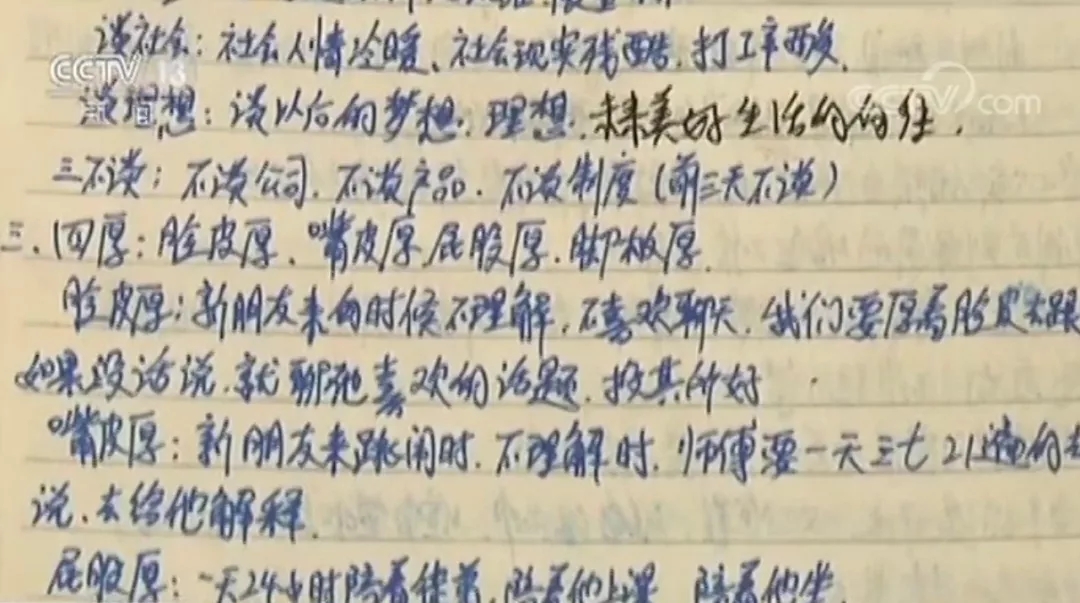 谈社会：社会人情冷暖、社会现实残酷，打工辛酸，
CCTV 13
新闻
cctv.com
谈理想：谈以后的梦想，理想，未来美好生活的向往，
三不谈：不谈公司、不谈产品、不谈制度（前三天不谈）
三、四厚：脸皮厚、嘴皮厚、屁股厚、脚板厚。
脸皮厚：新朋友来的时候不理解，不喜欢聊天，我们要厚着脸皮去跟
如果没话说，就聊他喜欢的话题，投其所好
嘴皮厚：新朋友来跳闹时，不理解时，师傅要一天三七21遍的去
说，去给他解释
屁股厚：一天24小时陪着 陪着他上课，陪着他坐